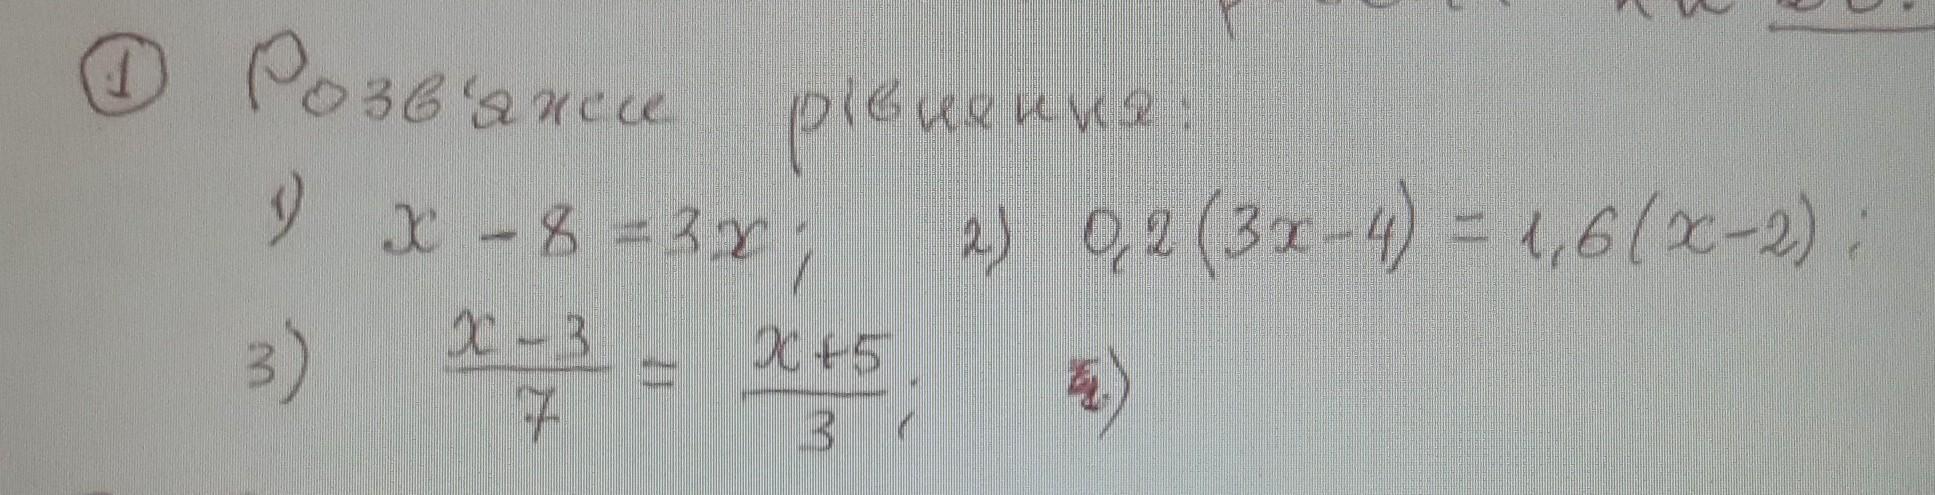 ① Розв'яжи рівняння:
1) x - 8 = 3x; 2) 0,2(3x-4) = 1,6(x-2);
3) \frac{x-3}{7} = \frac{x+5}{3};